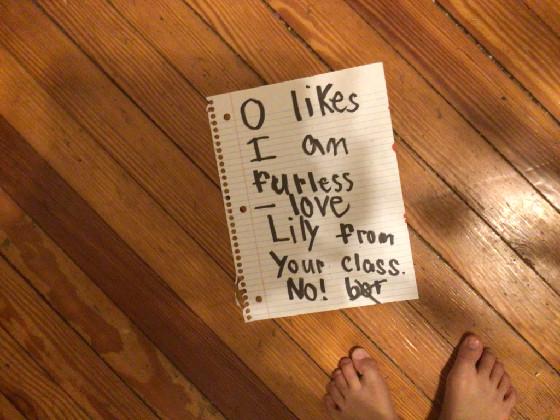 O likes
I am
furless
- love
Lily from
Your class.
No!